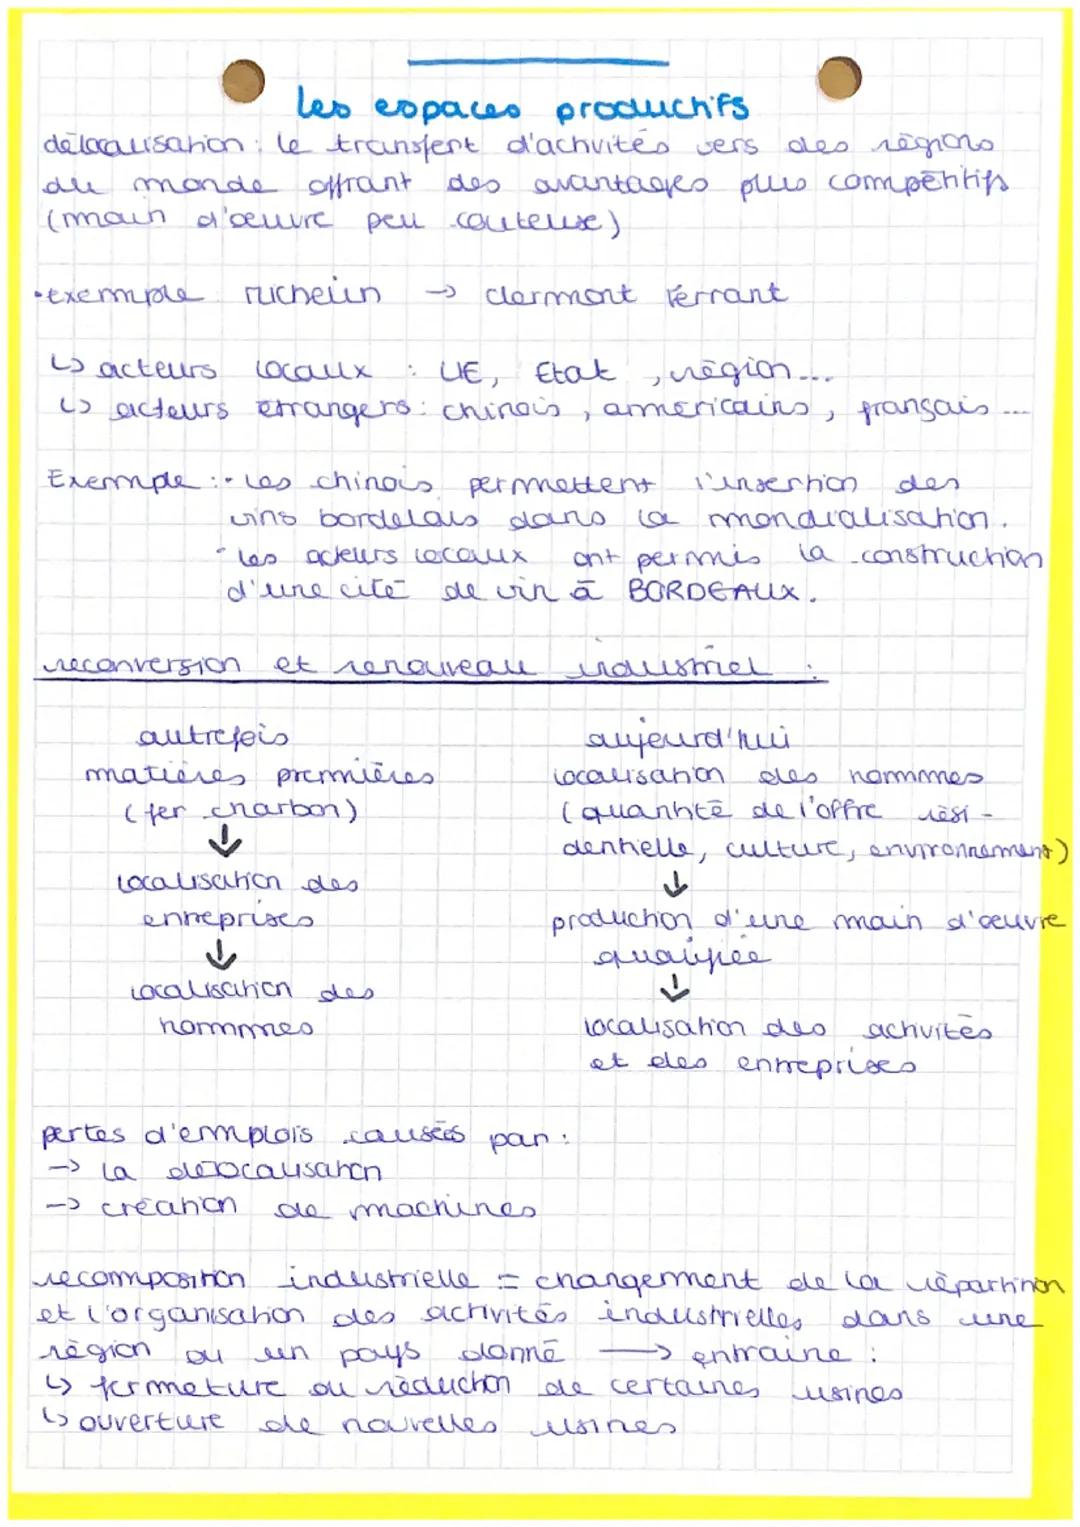 les espaces productifs
délocalisation : le transfert d'activités vers des régions
du monde offrant des avantages plus compétitifs
(main d'œuvre peu couteuse)
• exemple Michelin → clermont ferrant
↳ acteurs locaux : UE, Etat, région...
↳ acteurs étrangers : chinois, américains, français ...
Exemple : - les chinois permettent l'insertion des
vins bordelais dans la mondialisation.
- les acteurs locaux ont permis la construction
d'une cité de vin à BORDEAUX.
reconversion et renouveau industriel :
autrefois
matières premières
(fer charbon)
↓
localisation des
entreprises
↓
localisation des
hommes
aujourd'hui
localisation des hommes
(quantité de l'offre rési-
dentielle, culture, environnement)
↓
production d'une main d'œuvre
qualifiée
↓
localisation des activités
et des entreprises
pertes d'emplois causés par :
→ la délocalisation
→ création de machines
recomposition industrielle = changement de la répartition
et l'organisation des activités industrielles dans une
région ou un pays donné → entraine :
↳ fermeture ou réduction de certaines usines
↳ ouverture de nouvelles usines